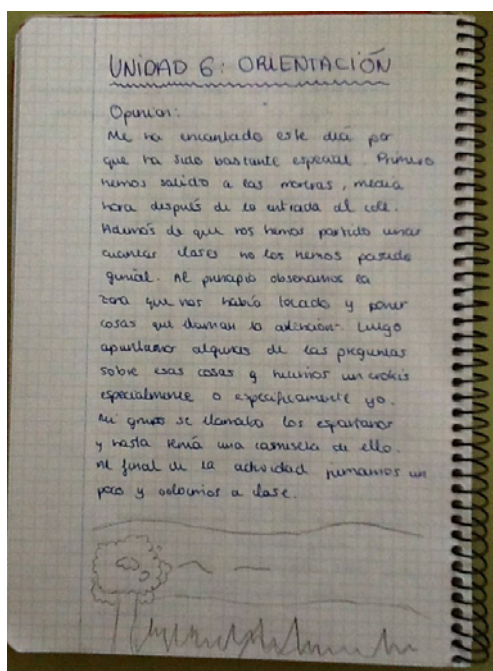 UNIDAD 6: ORIENTACIÓN
Opinión:
Me ha encantado este día por
que ha sido bastante especial. Primero
hemos salido a las moreras, media
hora después de la entrada al cole.
Además de que nos hemos partido unas
cuantas clases no los hemos pasado
genial. Al principio observamos la
zona que nos había tocado y poner
cosas que llaman la atención. Luego
apuntamos algunas de las preguntas
sobre esas cosas y hicimos un crokis
especialmente o específicamente yo.
Mi grupo se llamaba los espartanos
y hasta tenía una camiseta de ello.
Al final de la actividad jumamos un
poco y volvimos a clase.